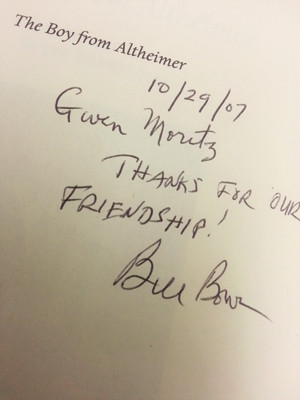 The Boy from Altheimer
10/29/07
Gwen Moritz
THANKS FOR OUR
FRIENDSHIP!
Bill Bowen